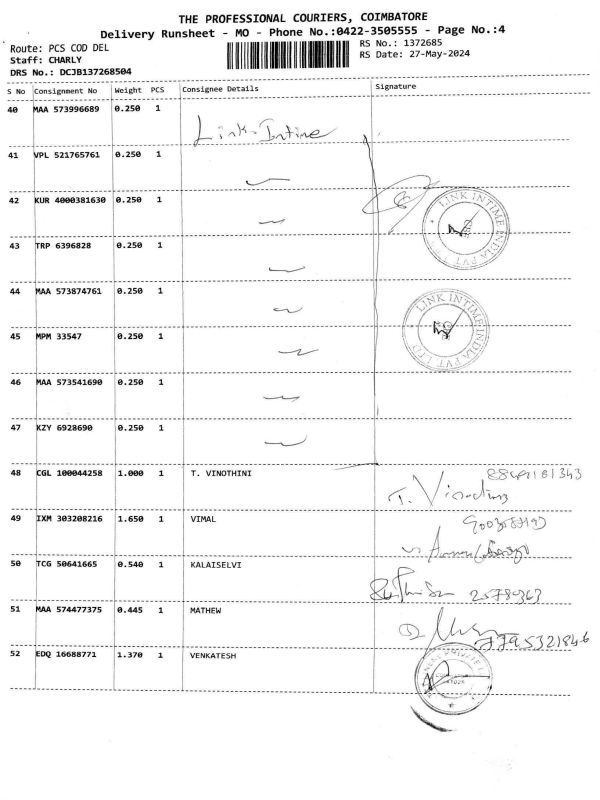 THE PROFESSIONAL COURIERS, COIMBATORE
Delivery Runsheet - MO - Phone No.:0422-3505555 - Page No.:4
Route: PCS COD DEL
RS No.: 1372685
Staff: CHARLY
RS Date: 27-May-2024
DRS No.: DCJB137268504
S No Consignment No Weight PCS Consignee Details Signature
40 MAA 573996689 0.250 1
Link Intime
41 VPL 521765761 0.250 1
42 KUR 4000381630 0.250 1
LINK INTIME INDIA PVT LTD
43 TRP 6396828 0.250 1
44 MAA 573874761 0.250 1
LINK INTIME INDIA PVT LTD
45 MPM 33547 0.250 1
46 MAA 573541690 0.250 1
47 KZY 6928690 0.250 1
48 CGL 100044258 1.000 1 T. VINOTHINI
49 IXM 303208216 1.650 1 VIMAL
50 TCG 50641665 0.540 1 KALAISELVI
51 MAA 574477375 0.445 1 MATHEW
7795321846
52 EDQ 16688771 1.370 1 VENKATESH